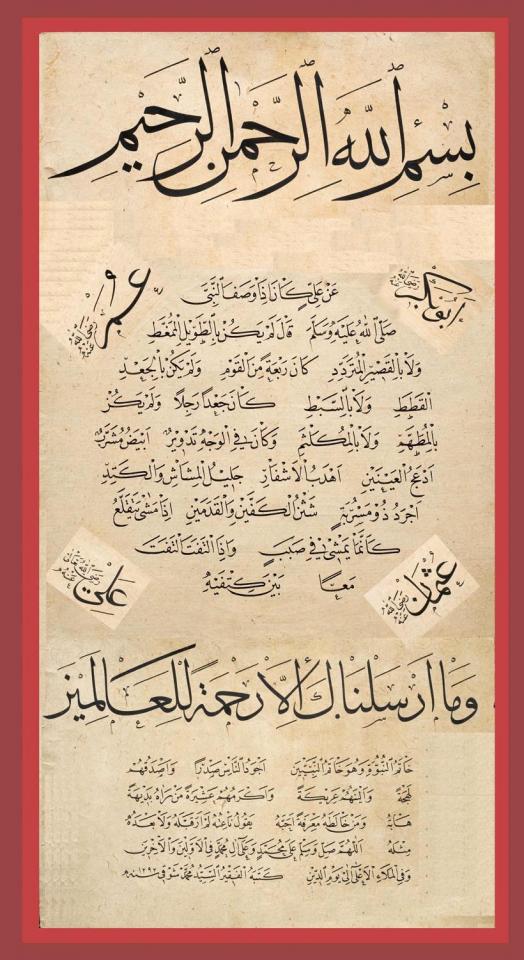 بِسْمِ اللهِ الرَّحْمٰنِ الرَّحِيمِ
ابوبكر رضى الله عنه
عمر رضى الله عنه
عَنْ عَلِيٍّ كَانَ إِذَا وَصَفَ النَّبِيَّ
صَلَّى اللهُ عَلَيْهِ وَسَلَّمَ قَالَ لَمْ يَكُنْ بِالطَّوِيلِ الْمُمَّغِطِ
وَلَا بِالْقَصِيرِ الْمُتَرَدِّدِ كَانَ رَبْعَةً مِنَ الْقَوْمِ وَلَمْ يَكُنْ بِالْجَعْدِ
الْقَطَطِ وَلَا بِالسَّبْطِ كَانَ جَعْدًا رَجِلًا وَلَمْ يَكُنْ
بِالْمُطَهَّمِ وَلَا بِالْمُكَلْثَمِ وَكَانَ فِي الْوَجْهِ تَدْوِيرٌ أَبْيَضُ مُشْرَبٌ
أَدْعَجُ الْعَيْنَيْنِ أَهْدَبُ الْأَشْفَارِ جَلِيلُ الْمُشَاشِ وَالْكَتَدِ
أَجْرَدُ ذُو مَسْرُبَةٍ شَثْنُ الْكَفَّيْنِ وَالْقَدَمَيْنِ إِذَا مَشَى يَتَقَلَّعُ
كَأَنَّمَا يَمْشِي فِي صَبَبٍ وَإِذَا الْتَفَتَ الْتَفَتَ
مَعًا بَيْنَ كَتِفَيْهِ
عثمان رضى الله عنه
على رضى الله تعالى عنه
وَمَا أَرْسَلْنَاكَ إِلَّا رَحْمَةً لِلْعَالَمِينَ
خَاتَمُ النُّبُوَّةِ وَهُوَ خَاتَمُ النَّبِيِّينَ أَجْوَدُ النَّاسِ صَدْرًا وَأَصْدَقُهُمْ
لَهْجَةً وَأَلْيَنُهُمْ عَرِيكَةً وَأَكْرَمُهُمْ عَشِيرَةً مَنْ رَآهُ بَدِيهَةً
هَابَهُ وَمَنْ خَالَطَهُ مَعْرِفَةً أَحَبَّهُ يَقُولُ نَاعِتُهُ لَمْ أَرَ قَبْلَهُ وَلَا بَعْدَهُ
مِثْلَهُ اللّٰهُمَّ صَلِّ وَسَلِّمْ عَلَى مُحَمَّدٍ وَعَلَى آلِ مُحَمَّدٍ فِي الْأَوَّلِينَ وَالْآخِرِينَ
وَفِي الْمَلَاءِ الْأَعْلَى إِلَى يَوْمِ الدِّينِ كَتَبَهُ الْفَقِيرُ السَّيِّدُ مُحَمَّد شَوْقِي